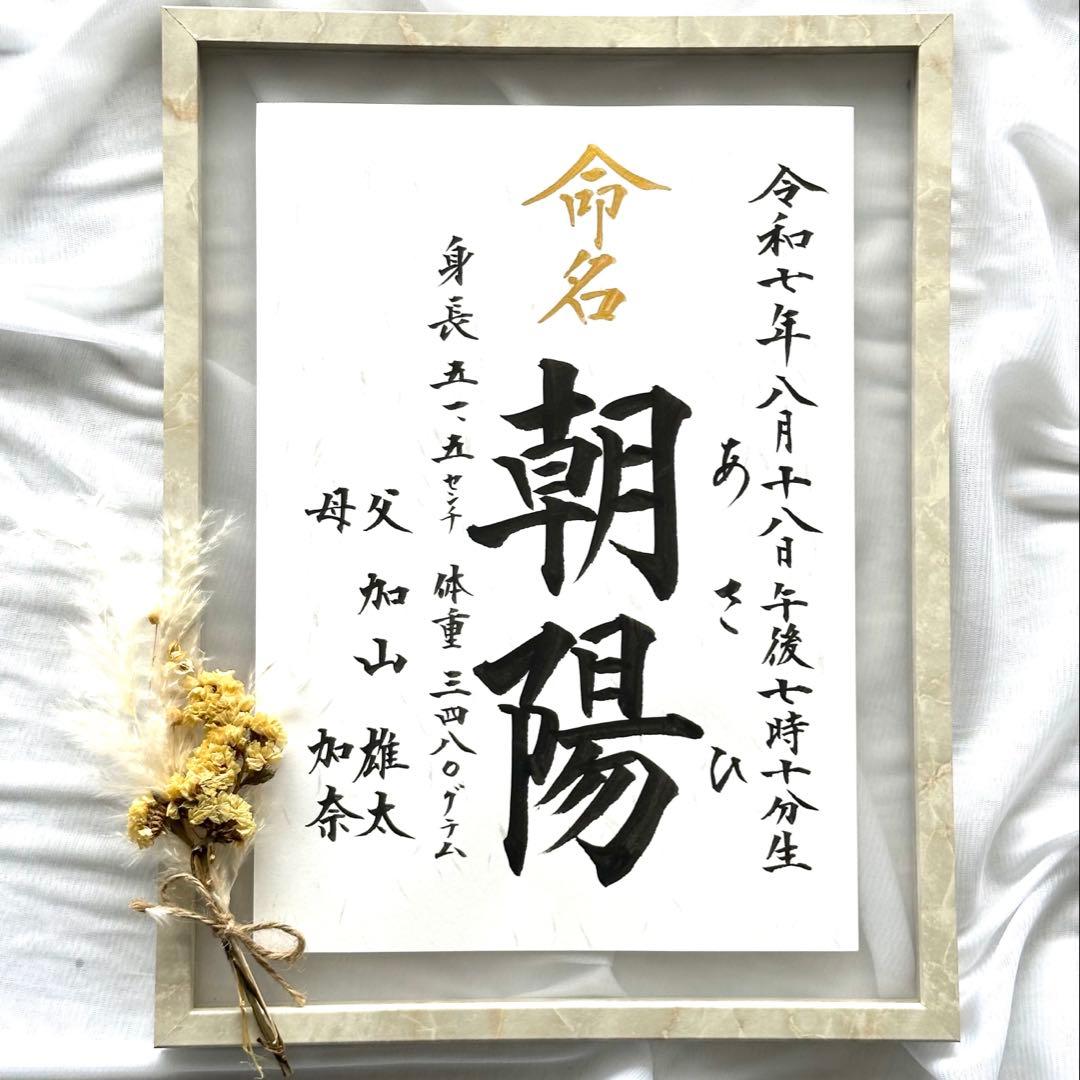 令和七年八月十八日午後七時十分生
あさひ
命名
朝陽
身長 五一、五センチ 体重 三四八〇グラム
父 加山 雄太
母 加奈